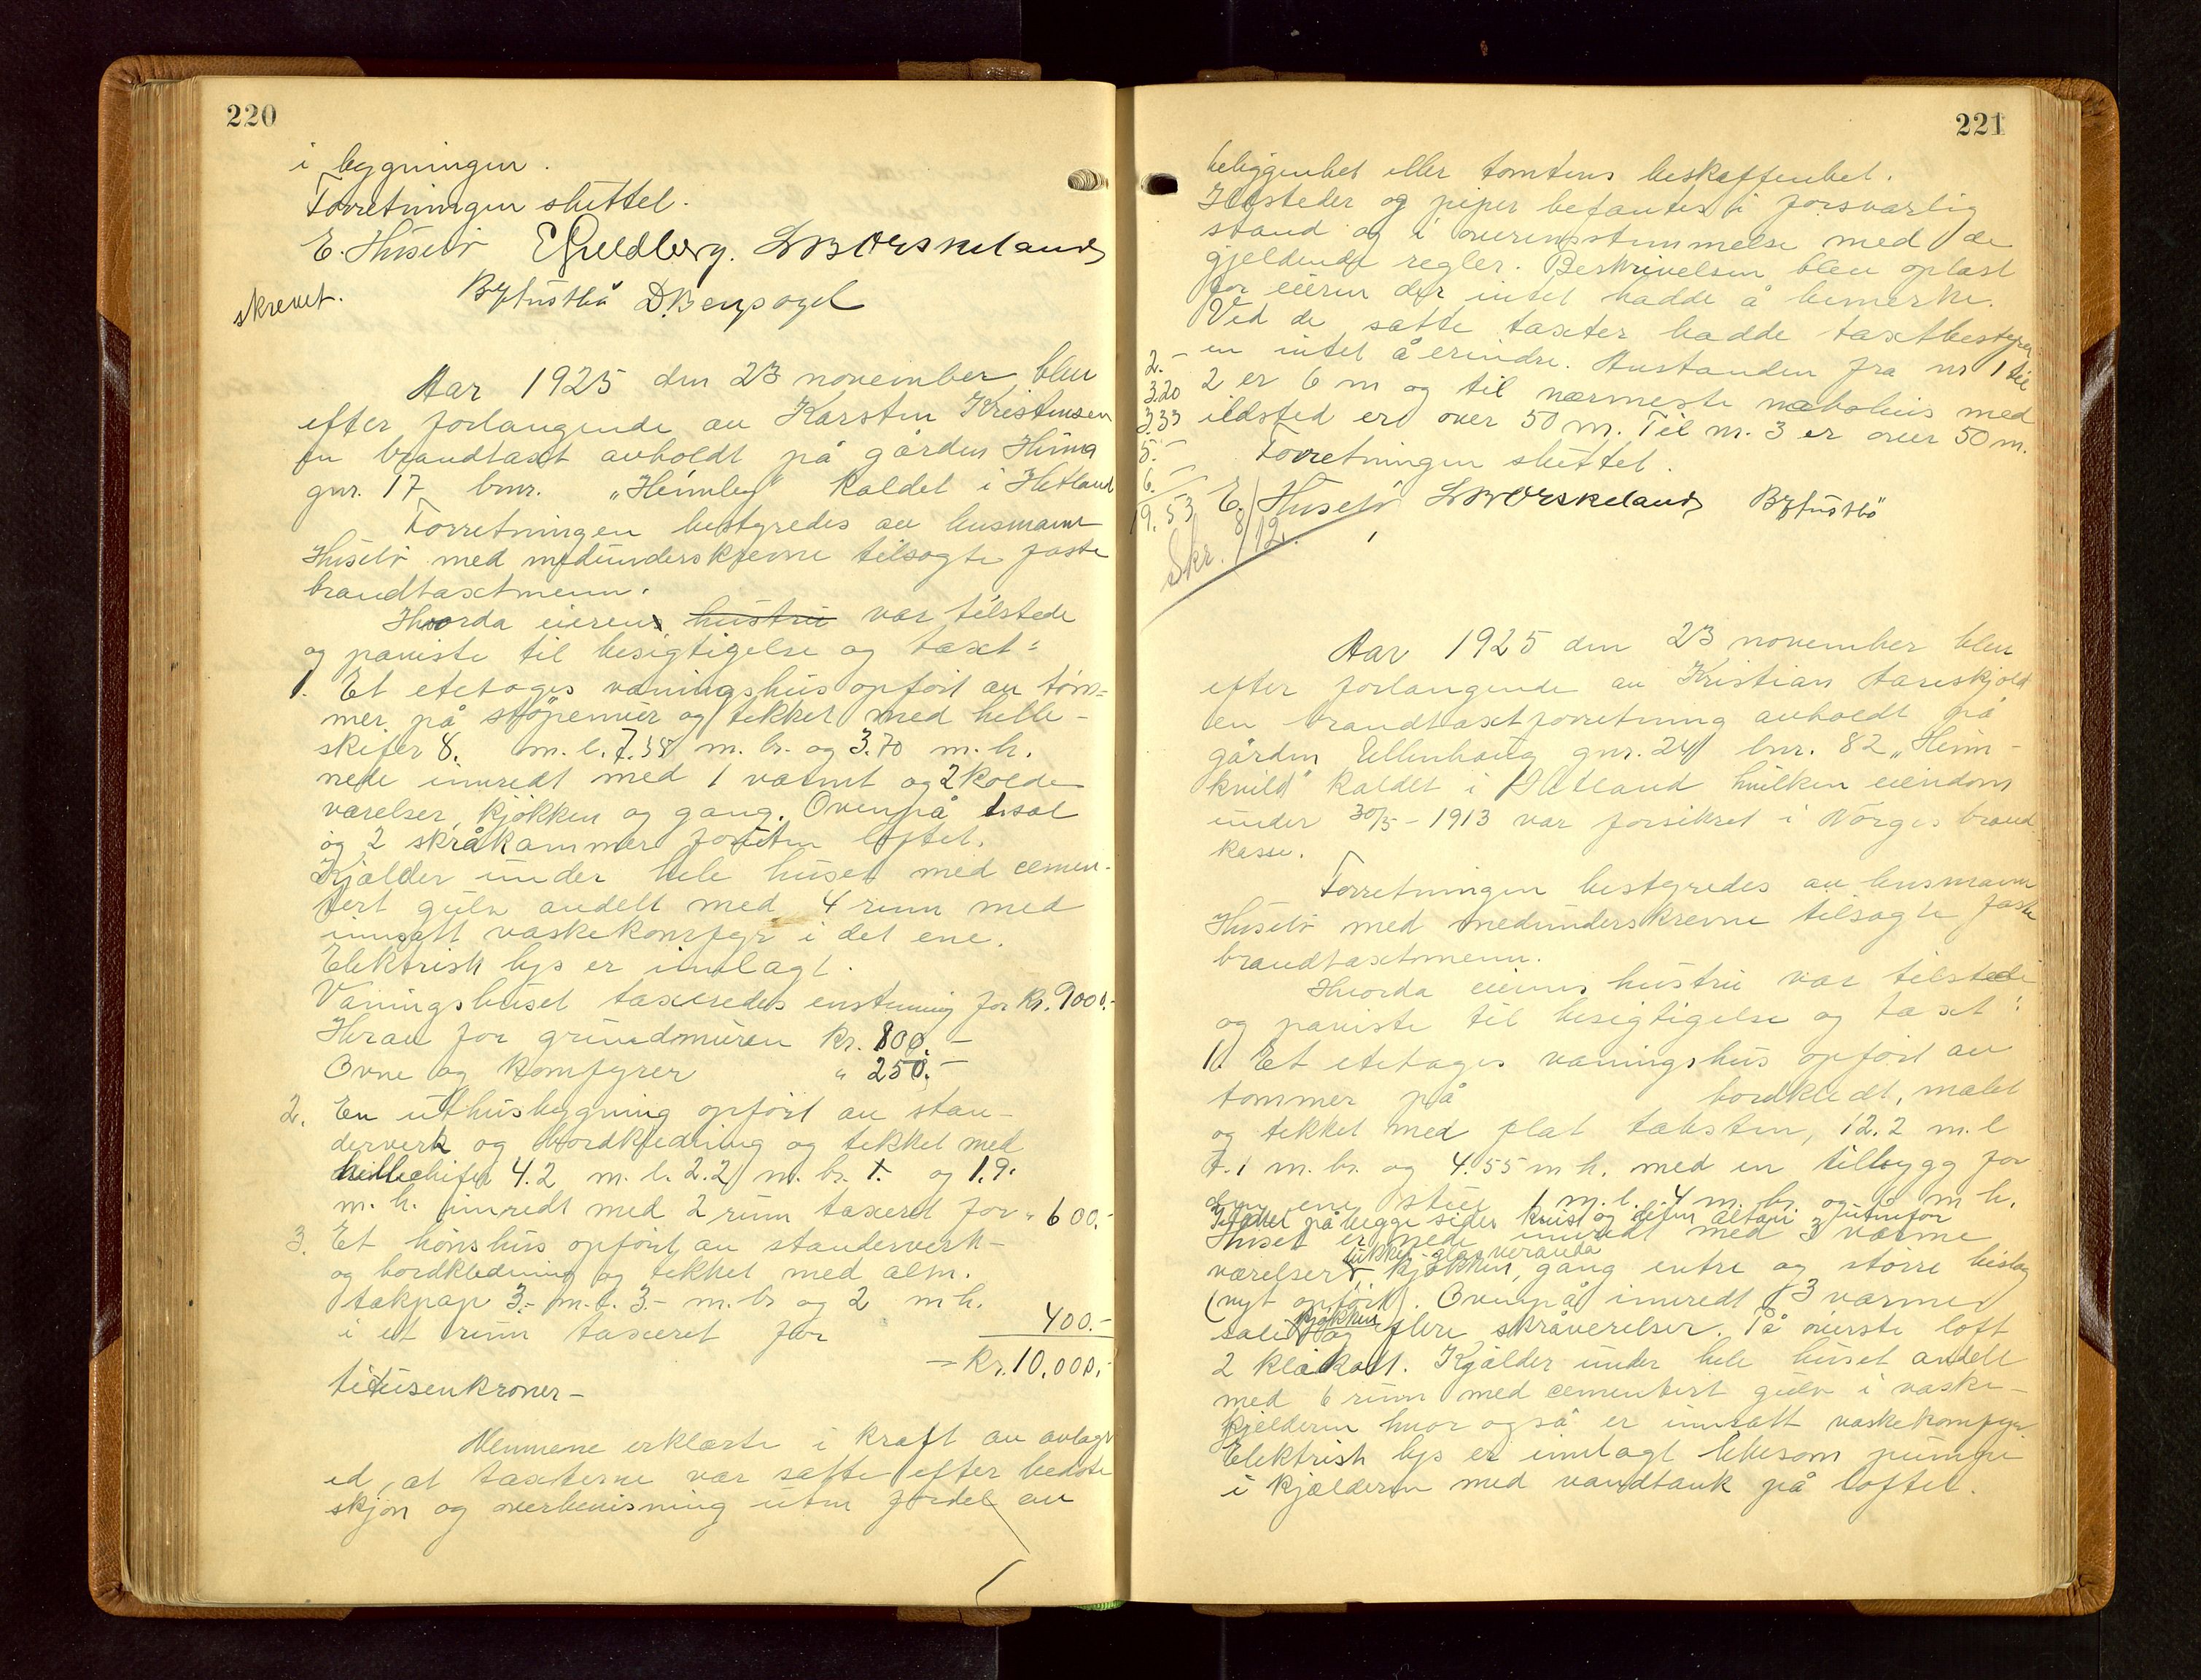 220
i bygningen.
Forretningen sluttet.
E. Huseby
skrevet.
Aar 1925 den 23 november blev
efter forlangende av Karsten Kristensen
en brandtaxt avholdt på gården
gnr. 17 bnr. "Heimly" kaldet i Hetland
Forretningen bestyredes av lensmann
med medunderskrevne tilsagte faste
brandtaxtmenn.
Hvorda eieren hustru var tilstede
og paviste til besigtigelse og taxt:
1. Et etetages våningshus opført av tøm-
mer på støpemur og tekket med helle-
skifer 8. m. l. 7.58 m. br. og 3.70 m. h.
nede innredt med 1 varmt og 2 kolde
værelser, kjøkken og gang. Ovenpå 1 sal
og 2 skråkammer foruten loftet.
Kjælder under hele huset med cemen-
tert gulv avdelt med 4 rum med
innsatt vaskekomfyr i det ene.
Elektrisk lys er innlagt.
Våningshuset taxeredes enstemmig for kr. 9000.-
Herav for grundmuren kr. 800.-
Ovne og komfyrer " 250.-
2. En uthusbygning opført av stan-
derverk og bordkledning og tekket med
4.2 m. l. 2.2 m. br. og 1.9.
m. h. innredt med 2 rum taxeret for " 600.-
3. Et hønshus opført av standerverk
og bordkledning og tekket med alm.
takpap 3.- m. l. 3.- m. br og 2 m h.
i et rum taxeret for 400.-
= Kr. 10.000.-
titusenkroner-
Mennene erklærte i kraft av avlagt
ed, at taxterne var satte efter bedste
skjøn og overbevisning uten fordel av
221
beliggenhet eller tomtens beskaffenhet.
Ildsteder og piper befantes i forsvarlig
stand og i overensstemmelse med de
gjeldende regler. Beskrivelsen blev oplæst
for eieren der intet hadde å bemerke.
Ved de satte taxter hadde taxtbestyrer
2.- en intet å erindre. Avstanden fra nr 1 til
3.20 2 er 6 m og til nærmeste nabohus med
3.33 ildsted er over 50 m. Til nr. 3 er over 50 m.
5.- Forretningen sluttet.
6.-
19.53 E. Huseby
Skr. 8/12.
Aar 1925 den 23 november blev
efter forlangende av Kristian Aareskjold
en brandtaxtforretning avholdt på
gården Ullenhaug gnr. 24 bnr. 82 "Heim-
kvild" kaldet i Hetland hvilken eiendom
under 30/5 - 1913 var forsikret i Norges brand
kasse.
Forretningen bestyredes av lensmann
med medunderskrevne tilsagte faste
brandtaxtmenn.
Hvorda eierens hustru var tilstede
og paviste til besigtigelse og taxt:
1. Et etetages våningshus opført av
tømmer på bordkledt, malet
og tekket med flat taksten, 12.2 m. l
7.1 m. br. og 4.55 m h. med en tilbygg for
den ene 1 m. l. 4 m. br. og 3 m h.
på begge sider kvist og altan utenfor
Huset er nede innredt med 3 varme
lukket glasveranda
værelser, kjøkken, gang entre og større bislag
(nyt opført). Ovenpå innredt 3 varme
kjøkken
saler og flere skråværelser. På øverste loft
2 klækott. Kjælder under hele huset avdelt
med 6 rum med cementert gulv i vaske-
kjelderen hvor også er innsatt vaskekomfyr
Elektrisk lys er innlagt likesom pumpe
i kjælderen med vandtank på loftet.